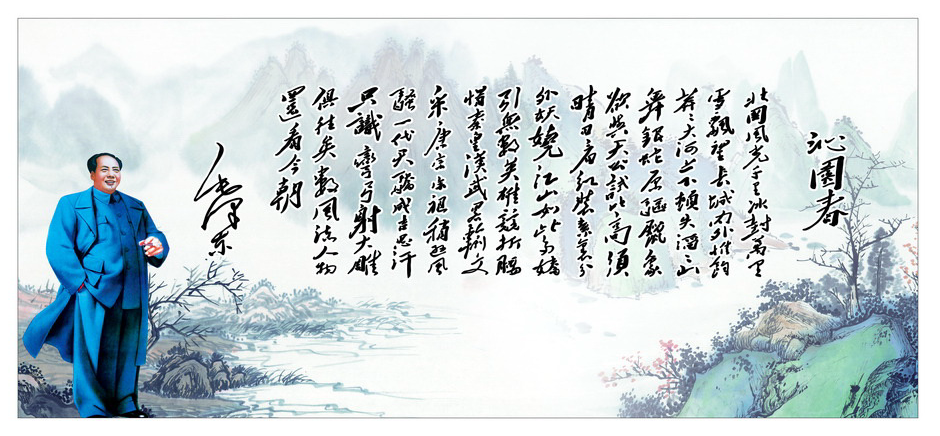 沁園春
北國風光千里冰封萬里
雪飄望長城内外惟餘
莽々大河上下頓失滔々山
舞銀蛇原驅臘象
欲與天公試比高須
晴日看紅裝素裹分
外妖嬈江山如此多嬌
引無數英雄競折腰
惜秦皇漢武略輸文
采唐宗宋祖稍遜風
騷一代天驕成吉思汗
只識彎弓射大雕
俱往矣數風流人物
還看今朝
毛澤東